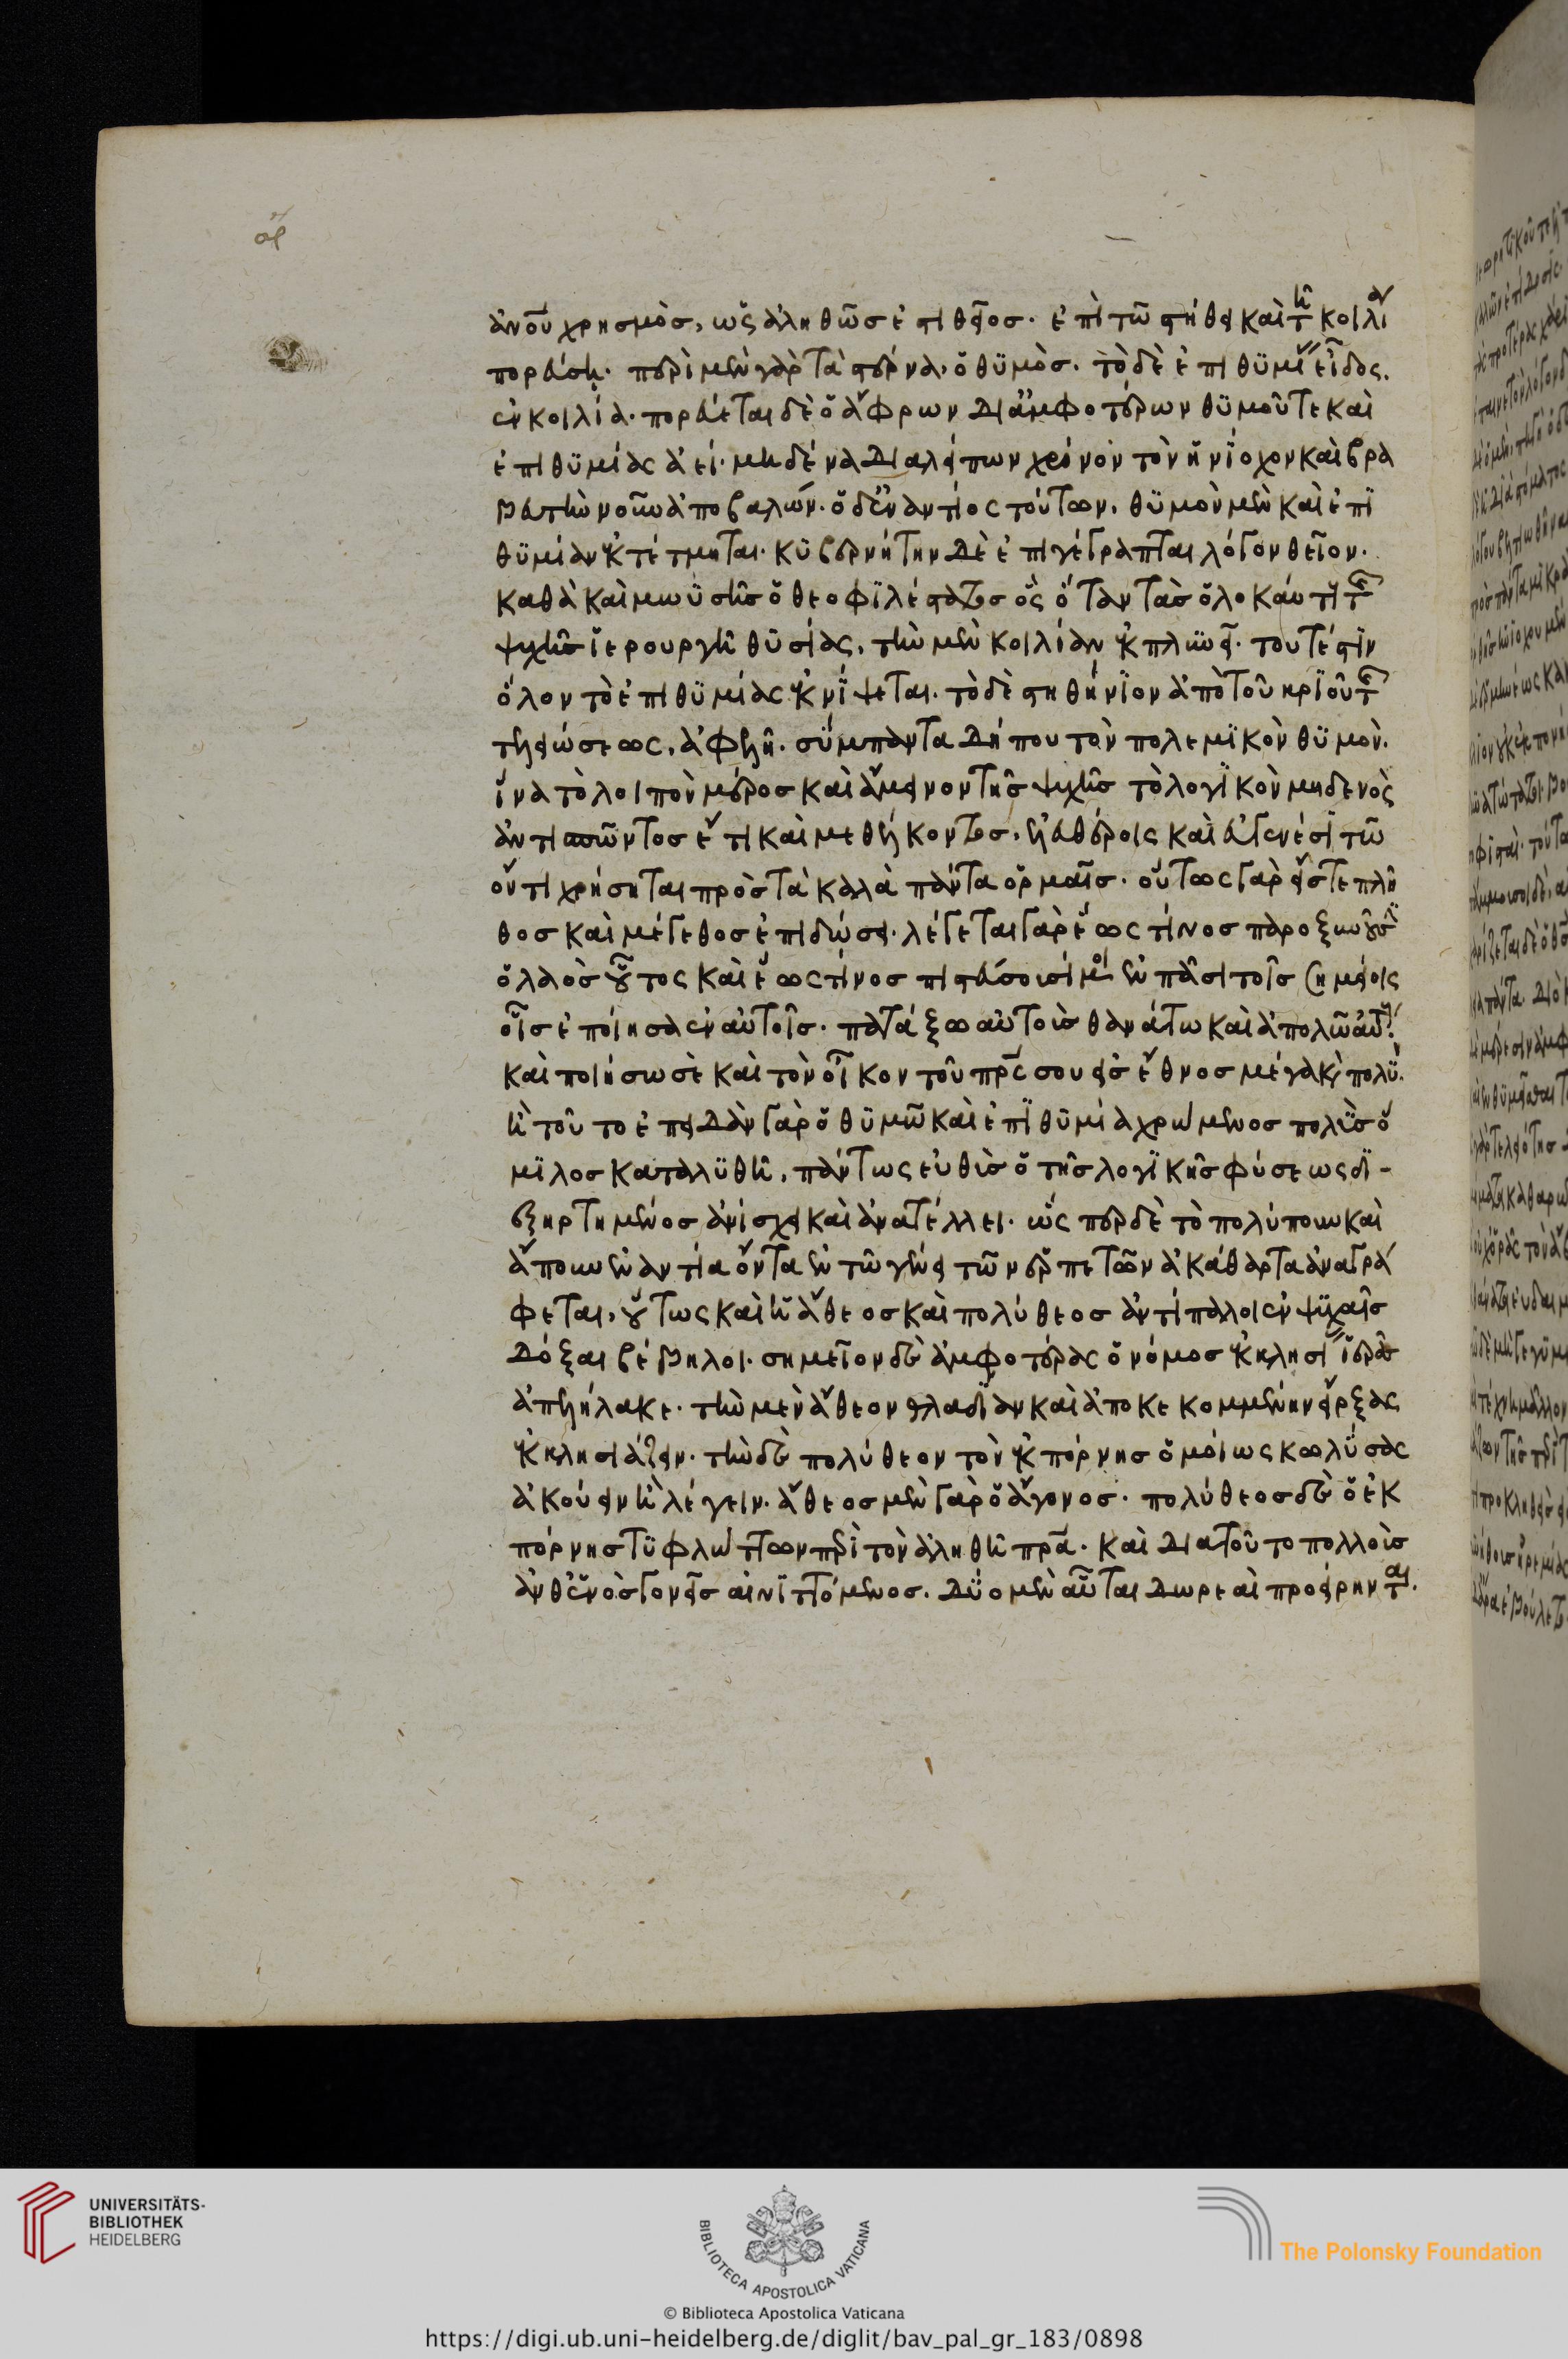 ἀνοῦν χρησμὸς, ὡς ἀληθῶς ἐστι θεῖος. ἐπὶ τῶ στήθει καὶ τῆ κοιλίαν
πορεύση. περὶ μὲν γὰρ τὰ στέρνα. ὁ θυμὸς. τὸ δὲ ἐπιθυμίας εἶδος.
ἐν κοιλία. πορεύεται δὲ ὁ ἄφρων δι' ἀμφοτέρων θυμοῦ τε καὶ
ἐπιθυμίας ἀεί. μηδένα διαλείπων χρόνον τὸν ἡνίοχον καὶ βρα
βευτὴν νοῦν ἀποβαλών. ὁ δ' ἐναντίος τούτων. θυμὸν μὲν καὶ ἐπι
θυμίαν ἐκτέτμηται. κυβερνήτην δὲ ἐπιγέγραπται λόγον θεῖον.
καθὰ καὶ μωϋσῆς ὁ θεοφιλέστατος ὃς ὅταν τὰς ὁλοκαύτι τῆς
ψυχῆς ἱερουργῆ θυσίας, τὴν μὲν κοιλίαν ἐκπλυνεῖ. τουτέστιν
ὅλον τὸ ἐπιθυμίας ἐκνίψεται. τὸ δὲ στηθήνιον ἀπὸ τοῦ κριοῦ τῆς
τελειώσεως, ἀφελῆ. σύμπαντα δήπου τὸν πολεμικὸν θυμὸν.
ἵνα τὸ λοιπὸν μέρος καὶ ἄμεινον τῆς ψυχῆς τὸ λογικὸν μηδενὸς
ἀντισπῶντος ἔτι καὶ μεθέλκοντος, ἐλευθέροις καὶ εὐγενέσι τῶ
ὄντι χρήσηται πρὸς τὰ καλὰ πάντα ὁρμαῖς. οὕτως γὰρ εἴς τε πλῆ
θος καὶ μέγεθος ἐπιδώσει. λέγεται γὰρ ἕως τίνος παροξυνοῦσιν
ὁ λαὸς οὗτος καὶ ἕως τίνος πιστεύσουσί μοι ἐν πᾶσι τοῖς σημείοις
οἷς ἐποίησα ἐν αὐτοῖς. πατάξω αὐτοὺς θανάτω καὶ ἀπολῶ αὐτούς.
καὶ ποιήσω σὲ καὶ τὸν οἶκον τοῦ πρς σου εἰς ἔθνος μέγα καὶ πολύ.
ἢ τοῦτο ἐπειδὰν γὰρ ὁ θυμῶ καὶ ἐπιθυμία χρώμενος πολὺς ὅ
μιλος καταλυθῆ, πάντως εὐθὺς ὁ τῆς λογικῆς φύσεως δι-
εξηρτημένος ἀνίσχει καὶ ἀνατέλλει. ὥσπερ δὲ τὸ πολύπουν καὶ
ἄπουν ἐναντία ὄντα ἐν τῶ γένει τῶν ἑρπετῶν ἀκάθαρτα ἀναγρά
φεται, οὕτως καὶ ἡ ἄθεος καὶ πολύθεος ἀντίπαλοι ἐν ψυχαῖς
δόξαι βέβηλοι. σημεῖον δὲ ἀμφοτέρας ὁ νόμος ἐκκλησίας ἱερᾶς
ἀπελήλακε. τὴν μὲν ἄθεον θλαδίαν καὶ ἀποκεκομμένην εἴρξας
ἐκκλησιάζειν. τὴν δὲ πολύθεον τὸν ἐκ πόρνης ὁμοίως κωλύσας
ἀκούειν ἢ λέγειν. ἄθεος μὲν γὰρ ὁ ἄγονος. πολύθεος δὲ ὁ ἐκ
πόρνης τυφλώττων περὶ τὸν ἀληθῆ πρα. καὶ διατοῦτο πολλοὺς
ἀνθ' ἑνὸς γονεῖς αἰνιττόμενος. δύο μὲν αὗται δωρεαὶ προείρηνται.
UNIVERSITÄTS-
BIBLIOTHEK
HEIDELBERG
BIBLIOTECA APOSTOLICA VATICANA
The Polonsky Foundation
© Biblioteca Apostolica Vaticana
https://digi.ub.uni-heidelberg.de/diglit/bav_pal_gr_183/0898